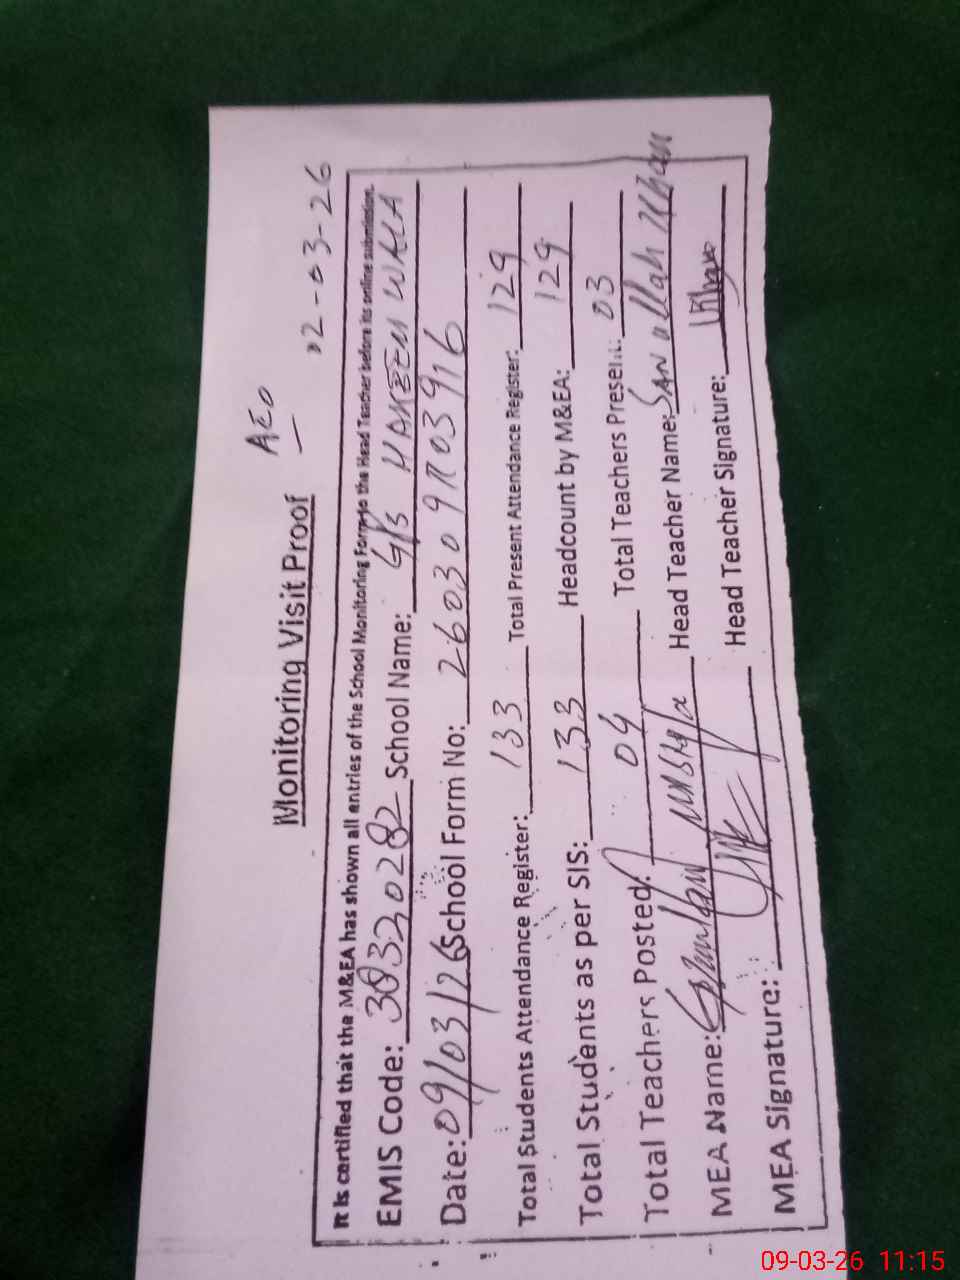 AEO
02-03-26
Monitoring Visit Proof
It is certified that the M&EA has shown all entries of the School Monitoring Form to the Head Teacher before its online submission.
EMIS Code: 38330282 School Name: G/S HAKEEM WALA
Date: 09/03/26 School Form No: 260309110 3916
Total Students Attendance Register: 133 Total Present Attendance Register: 129
Total Students as per SIS: 133 Headcount by M&EA: 129
Total Teachers Posted: 04 Total Teachers Present: 03
MEA Name: Head Teacher Name: SAN ullah Khan
MEA Signature: Head Teacher Signature:
09-03-26 11:15